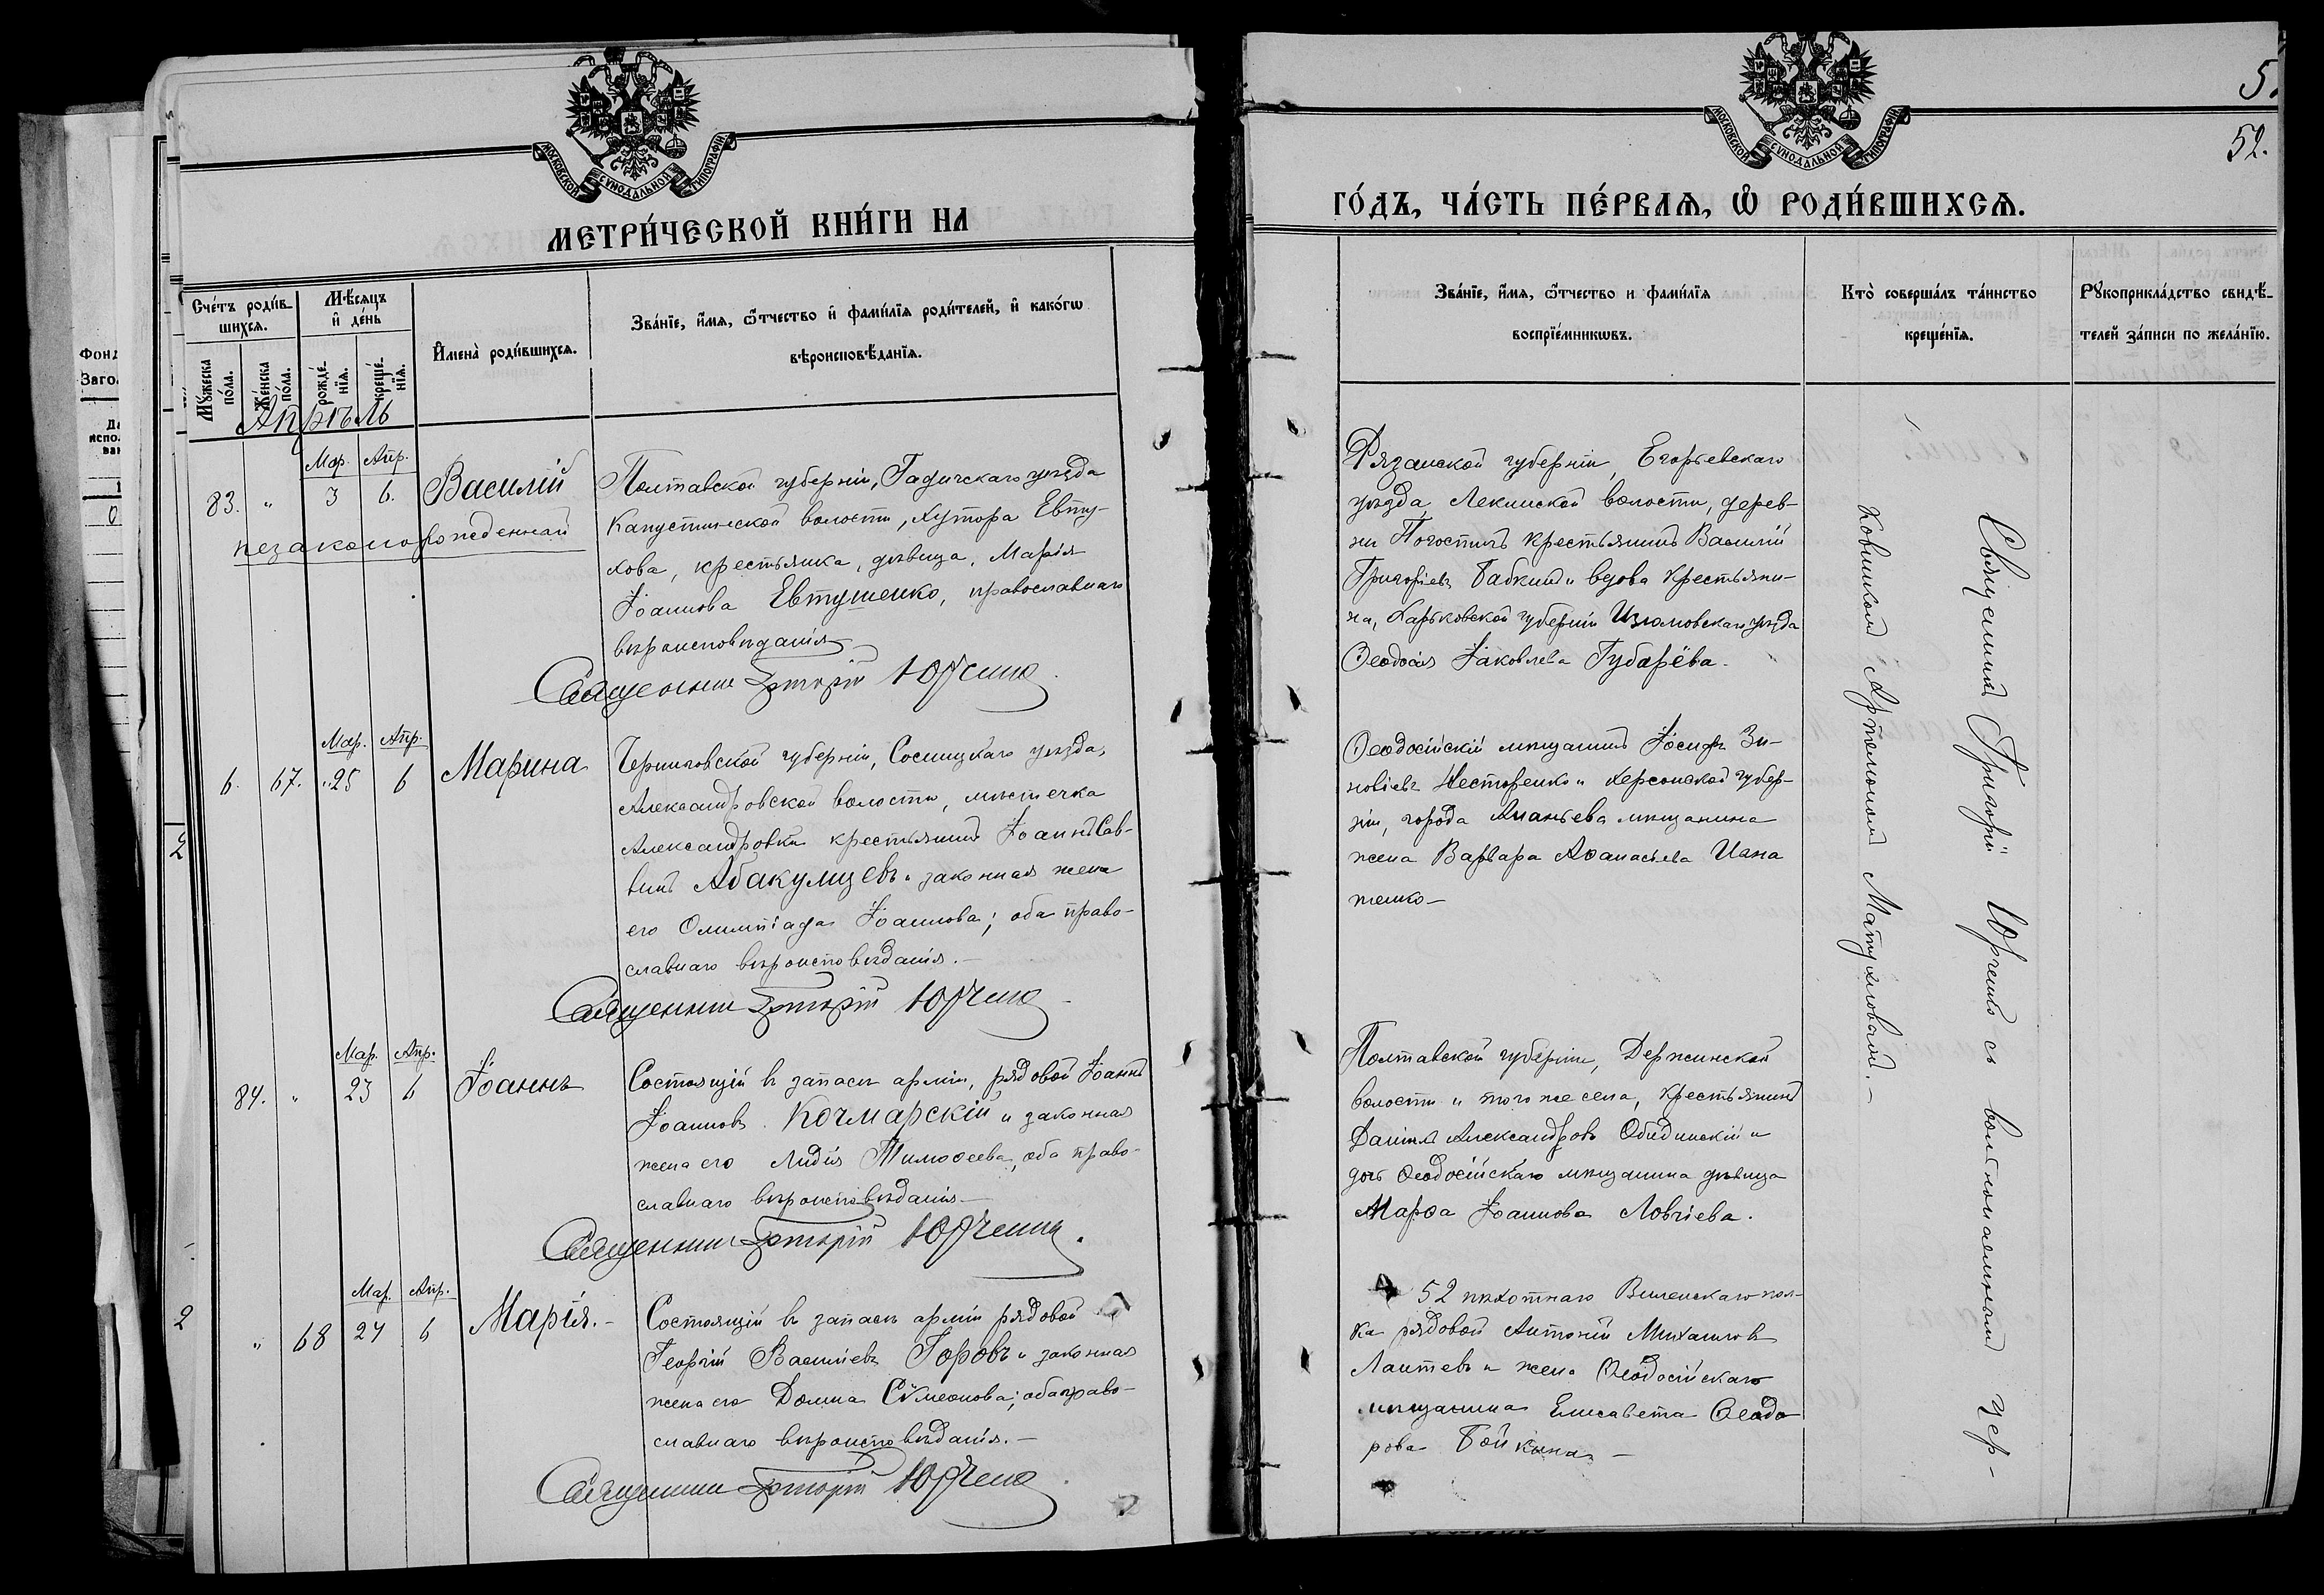 МОСКОВСКОЙ СУНОДАЛЬНОЙ ТИПОГРАФІИ
МЕТРИ́ЧЕСКОЙ КНИ́ГИ НА
Сче́тъ роди́в-
шихся.
Мѣ́сяцъ
и де́нь
Му́жеска
по́ла.
Же́нска
по́ла.
рожде́-
нїя.
креще́-
нїя.
И҆мена̀ роди́вшихся.
Зва́нїе, и҆́мя, ѻ҆́тчество и҆ фами́лїя роди́телей, и҆ како́гѡ
вѣроисповѣ́данїя.
Апрѣль
Мар. Апр.
83. " 3 6. Василій
незаконорожденный
Полтавской губерніи, Гадячскаго уѣзда
Капустинской волости, хутора Евту-
хова, крестьянка, дѣвица, Марія
Іоаннова Евтушенко, православнаго
вѣроисповѣданія
Священникъ Григорій Юрченко
Мар. Апр.
6. 67. 25 6 Марина
Черниговской губерніи, Сосницкаго уѣзда,
Александровской волости, мѣстечка
Александровки крестьянинъ Іоаннъ Сав-
винъ Абакумцевъ и законная жена
его Олимпіада Іоаннова; оба право-
славнаго вѣроисповѣданія.—
Священникъ Григорій Юрченко
Мар. Апр.
84. " 23 6 Іоаннъ
Состоящій въ запасѣ арміи, рядовой Іоаннъ
Іоанновъ Кочмарскій и законная
жена его Лидія Тимоѳеева, оба право-
славнаго вѣроисповѣданія—
Священникъ Григорій Юрченко.
Мар. Апр.
" 68 24 6 Марія.-
Состоящій въ запасѣ арміи рядовой
Георгій Васильевъ Горовъ и законная
жена его Домна Сѵмеонова; оба право-
славнаго вѣроисповѣданія.—
Священникъ Григорій Юрченко
МОСКОВСКОЙ СУНОДАЛЬНОЙ ТИПОГРАФІИ
5
52.
ГО́ДЪ, ЧА́СТЬ ПЕ́РВАЯ, Ѡ҆ РОДИ́ВШИХСЯ.
Зва́нїе, и҆́мя, ѻ҆́тчество и фами́лїя
воспрїе́мникѡвъ.
Кто̀ соверша́лъ та́инство
креще́нїя.
Рꙋкоприкла́дство свидѣ́-
телей за́писи по жела́нїю.
Рязанской губерніи, Егорьевскаго
уѣзда, Лекинской волости, дерев-
ни Погостичъ крестьянинъ Василій
Григорьевъ Бабкинъ и вдова крестьяни-
на, Харьковской губерніи Изюмовскаго уѣзда
Ѳеодосія Іаковлева Губарёва.
Ѳеодосійскій мѣщанинъ Іосифъ Зи-
новіевъ Нестеренко и Херсонской губер-
ніи, города Ананьева мѣщанина
жена Варвара Аѳанасьева
Полтавской губерніи, Держинской
волости и того же села, крестьянинъ
Даніилъ Александровъ Обидинскій и
дочь Ѳеодосійскаго мѣщанина дѣвица
Марѳа Іоаннова Ловчіева.
52 пѣхотнаго Виленскаго пол-
ка рядовой Антоній Михаиловъ
Лаптевъ и жена Ѳеодосійскаго
мѣщанина Елисавета Ѳеодо
рова Бойкина—
Священникъ Григорій Юрченко съ вольнонаемнымъ чер-
ковникомъ Артемономъ Матушовымъ.—